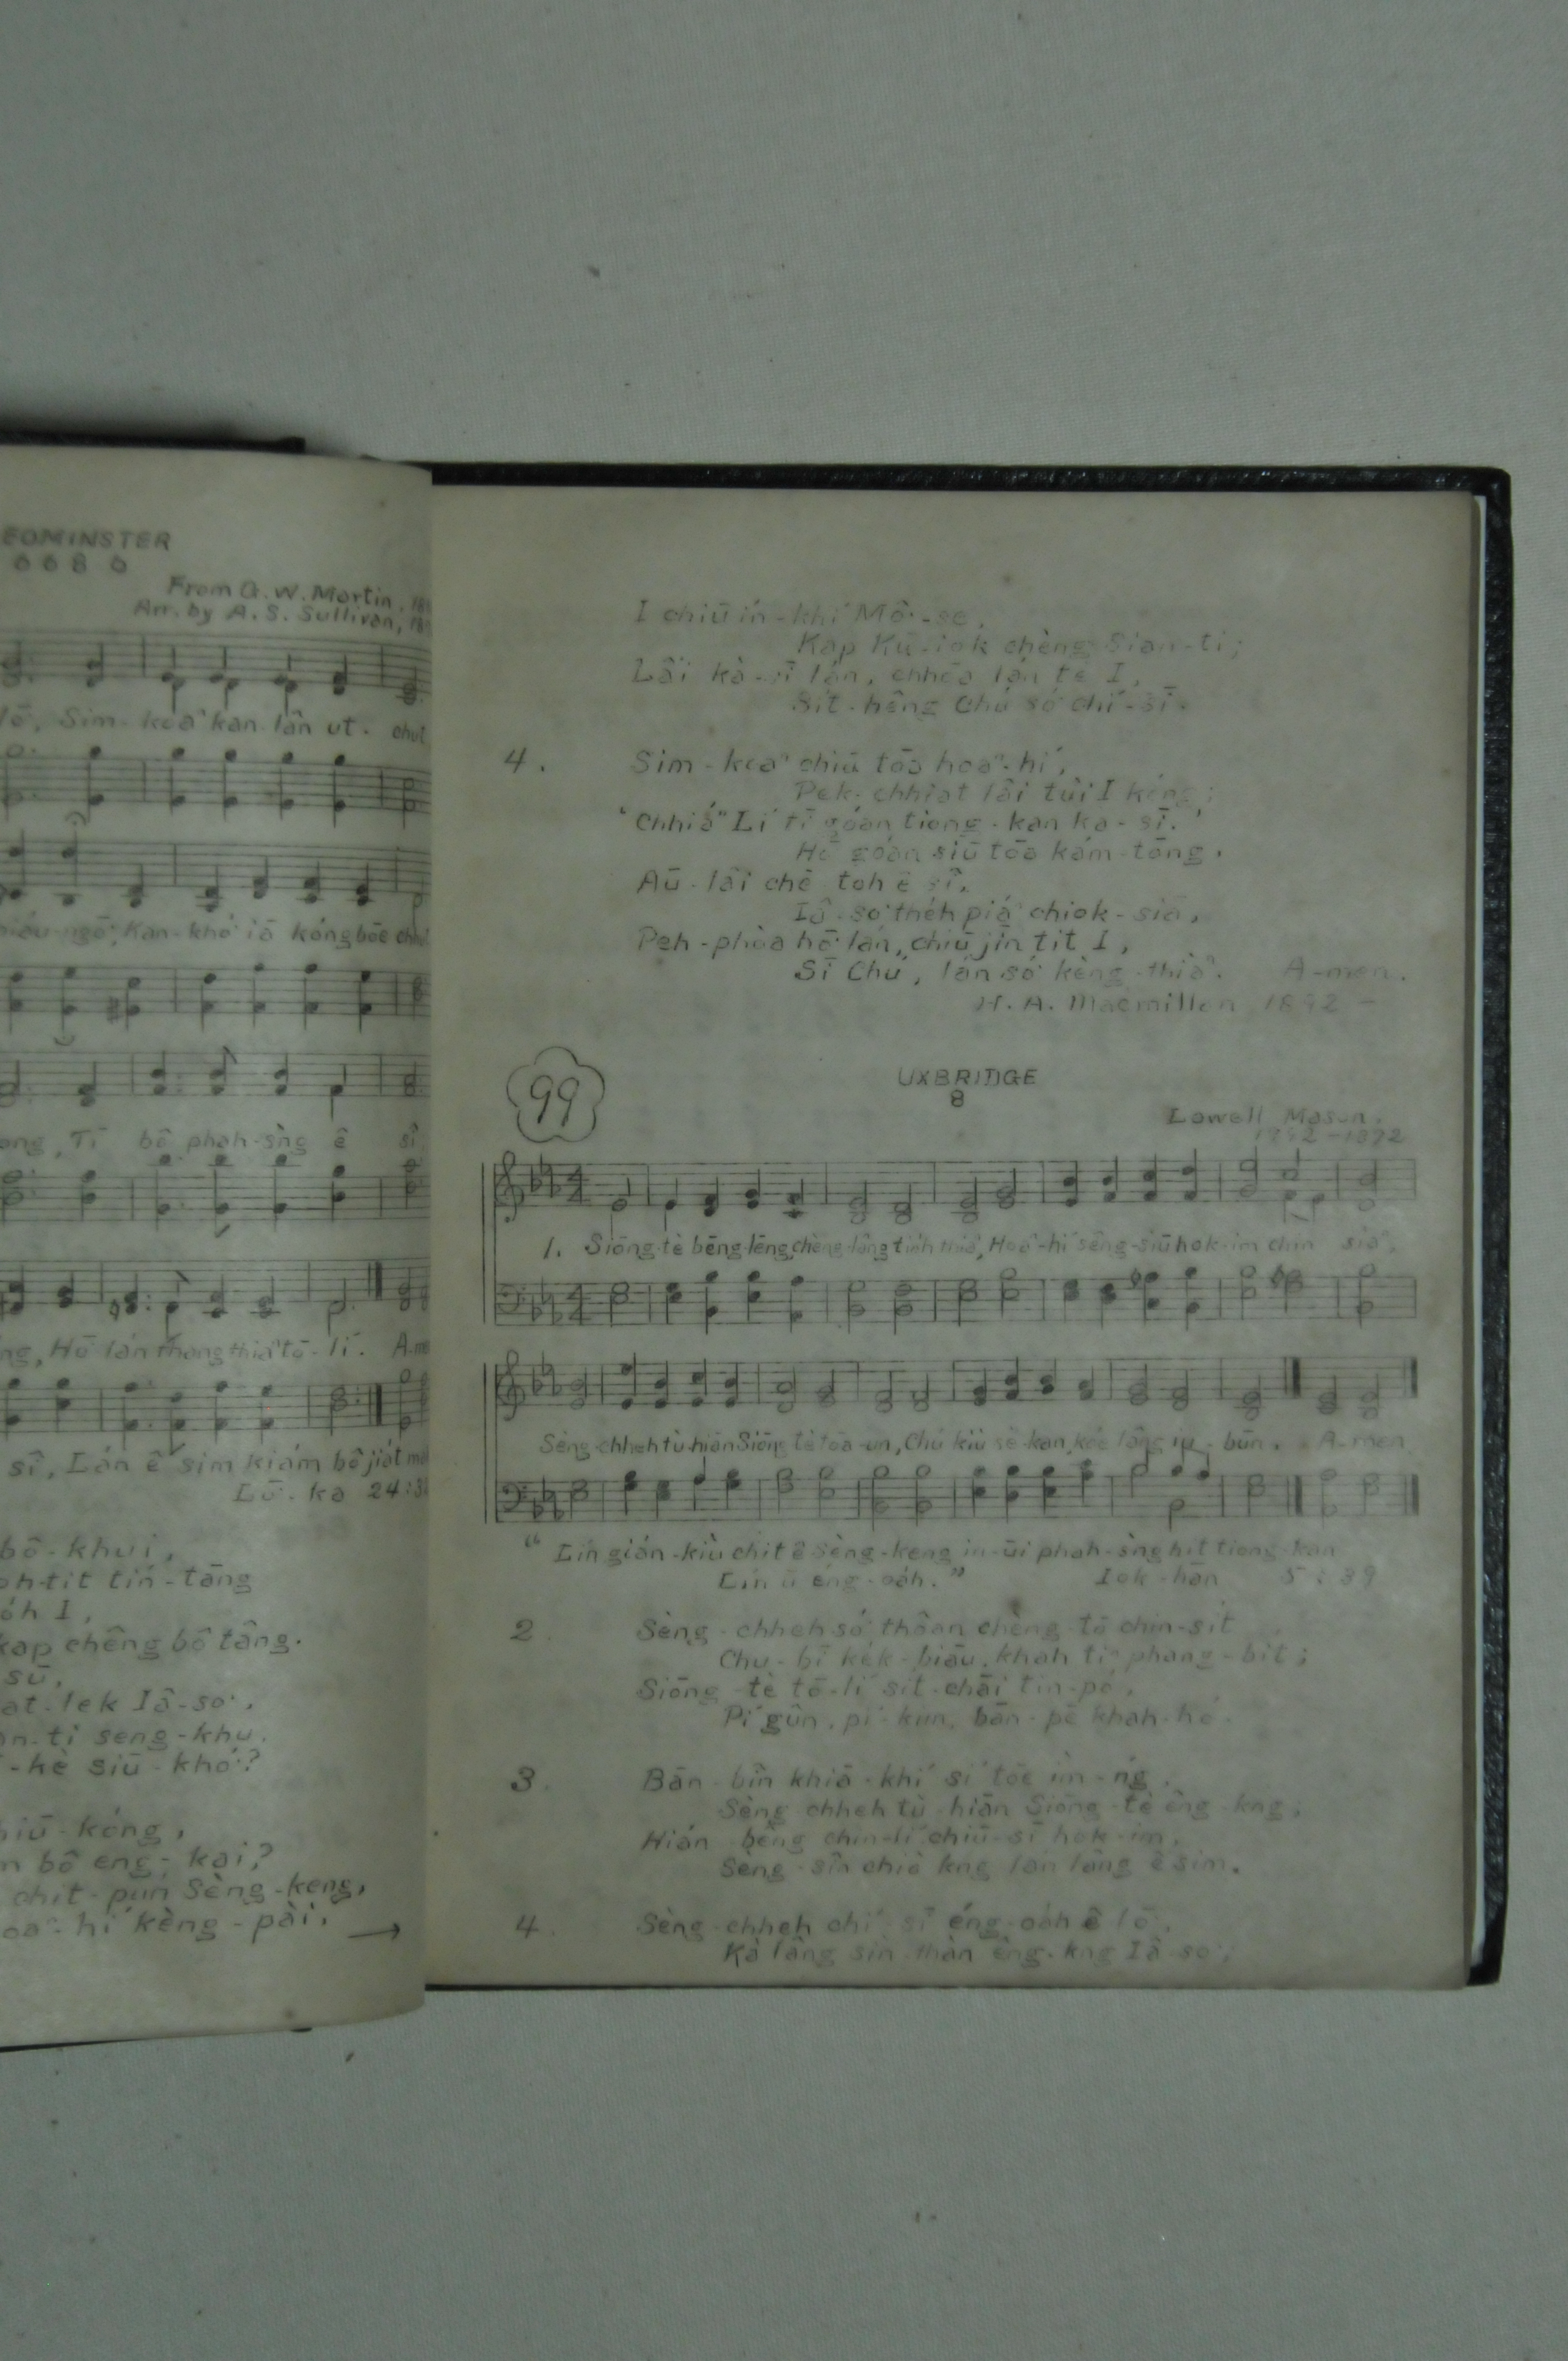 EOMINSTER
6 6 8 6
From G. W. Martin, 18
Arr. by A. S. Sullivan, 18
lō, Sim-koaⁿ kan-lân ut. chut
Kan-khó͘ iā kóng bōe
Tī bô phah-sǹg ê sî
ng, Hō͘ lán thang thiaⁿ tō-lí. A-me
sî, Lán ê sim kiám bô jia̍t
Lō͘-ka 24:3
bô-khui,
tit tín-tāng
I,
kap chêng bô tâng.
sū,
lek Iâ-so͘,
ti seng-khu.
-kè siū-khó͘?
hiū-kóng,
bô eng-kai?
chi̍t-pún Sèng-keng,
hí kèng-pài, →
I chiū ín-khí Mô͘-se,
Kap Kū-iok chèng Sian-ti;
Lâi kà-sī lán, chhōa lán tè I,
Si̍t-hêng Chú só͘ chí-sī.
4. Sim-koaⁿ chiū tōa hoaⁿ-hí,
Pek-chhiat lâi tùi I kóng;
"Chhiáⁿ Lí tī góan tiong-kan ka-sī."
Hō͘ góan siū tōa kám-tōng,
Āu-lâi chē toh ê sî,
Iâ-so͘ the̍h piáⁿ chiok-siā,
Peh-phòa hō͘ lán, chiū jīn tit I,
Sī Chú, lán só͘ kèng-thiàⁿ. A-men.
H. A. Macmillan 1892 -
99
UXBRIDGE
8
Lowell Mason,
1792-1872
1. Siōng-tè bēng-lēng, chèng-lâng tio̍h thiaⁿ, Hoaⁿ-hí sêng-siū hok-im chin siaⁿ,
Sèng-chheh tù-hiān Siōng-tè tōa-un, Chú kiù sè-kan, kóe lâng iu-būn. A-men
"Lín gián-kiù chit ê Sèng-keng in-ūi phah-sǹg hit tiong-kan
Lín ū éng-oa̍h." Iok-hān 5:39
2. Sèng-chheh só͘ thôan chèng-tō chin-si̍t
Chu-bī ke̍k-biāu, khah tiⁿ phang-bi̍t;
Siōng-tè tō-lí sit-chāi tin-pó,
Pí gûn, pí kim, bān-pē khah-hó.
3. Bān-bîn khiā-khí sí tōe ìm-ńg,
Sèng-chheh tù-hiān Siōng-tè êng-kng;
Hián-bêng chin-lí chiū-sī hok-im,
Sèng-sîn chiò kng lán lâng ê sim.
4. Sèng-chheh chí-sī éng-oa̍h ê lō͘,
Kà lâng sìn-thàn êng-kng Iâ-so͘;